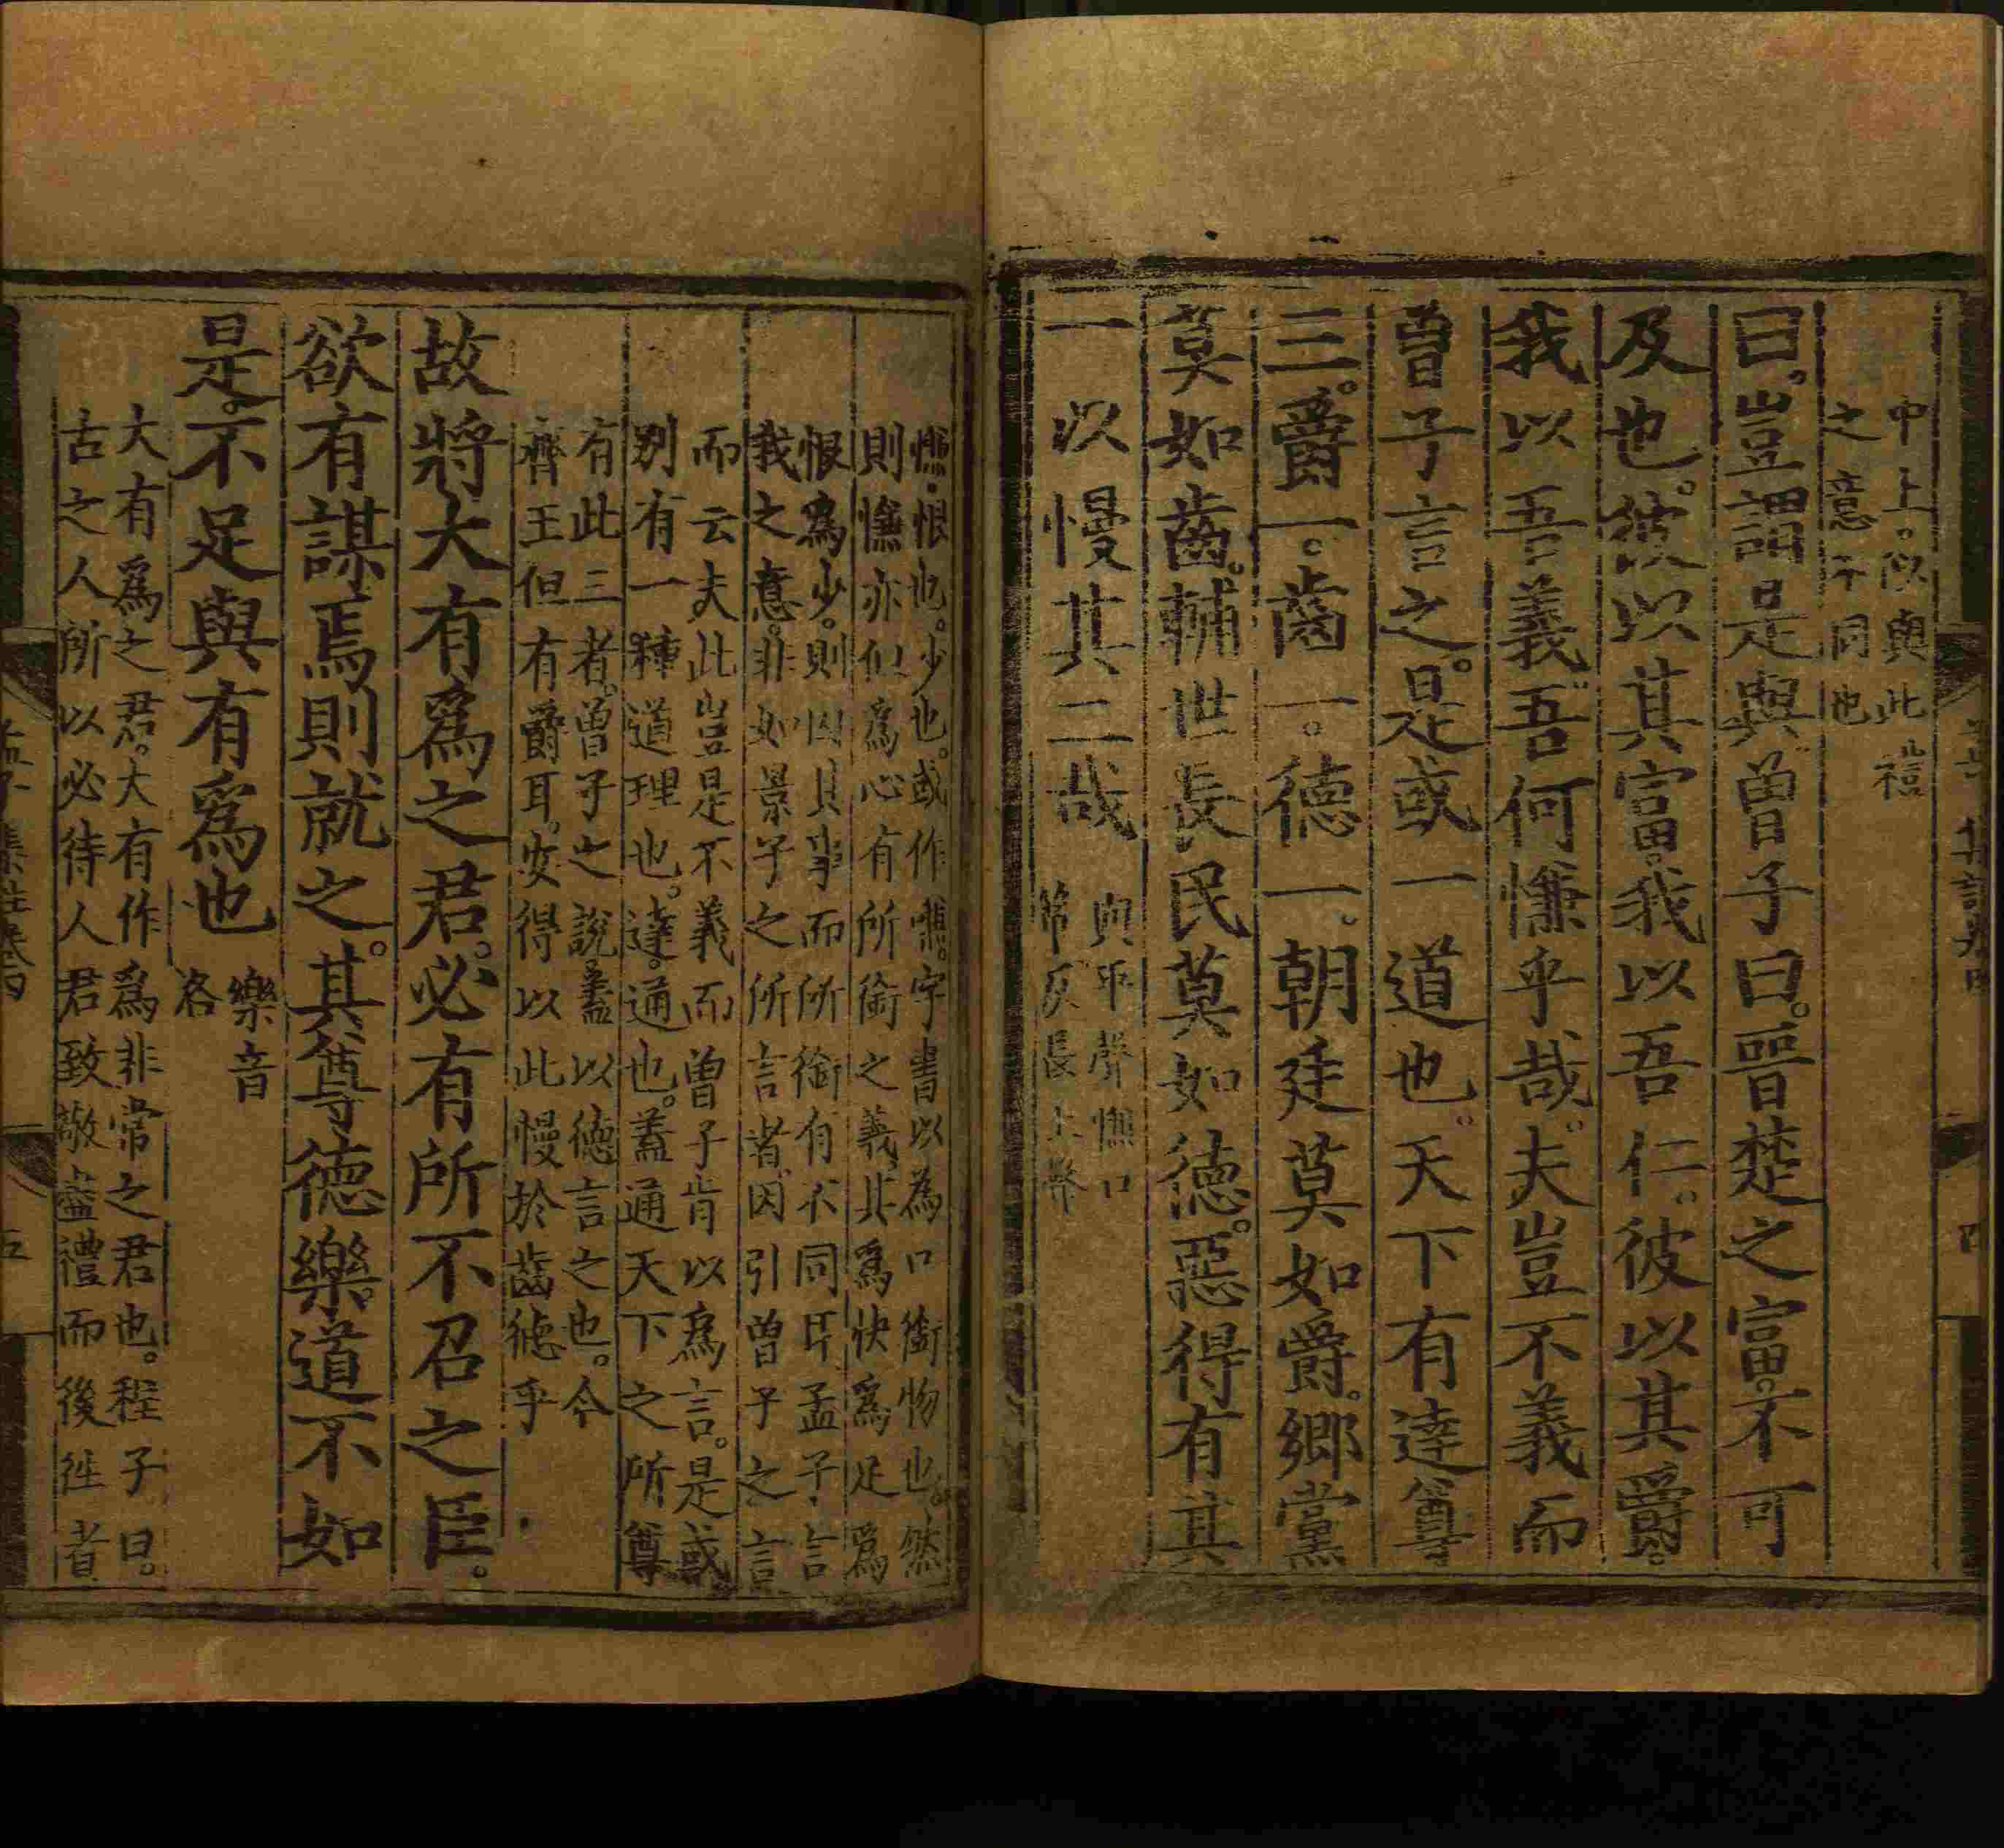 中上。似與此禮
之意不同也
曰。豈謂是與。曾子曰。晉楚之富。不可
及也。彼以其富。我以吾仁。彼以其爵。
我以吾義。吾何慊乎哉。夫豈不義而
曾子言之。是或一道也。天下有達尊
三。爵一。齒一。德一。朝廷莫如爵。鄉黨
莫如齒。輔世長民莫如德。惡得有其
一以慢其二哉
與平聲慊口
簟反長上聲
慊。恨也。少也。或作嗛。字書以為口銜物也。然
則慊亦但爲心有所銜之義。其爲快爲足爲
恨爲少。則因其事而所銜有不同耳。孟子言
我之意。非如景子之所言者。因引曾子之言
而云夫此豈是不義而曾子肯以爲言。是或
別有一種道理也。達。通也。蓋通天下之所尊
有此三者。曾子之說。蓋以德言之也。今
齊王但有爵耳。安得以此慢於齒德乎
故將大有爲之君。必有所不召之臣。
欲有謀焉則就之。其尊德樂道不如
是。不足與有爲也
樂音
洛
大有爲之君。大有作爲非常之君也。程子曰。
古之人所以必待人君致敬盡禮而後往者
孟子集註卷四
五